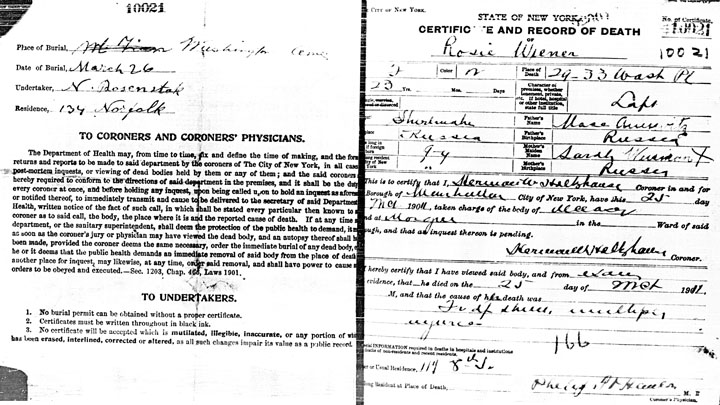 10021
Place of Burial, Washington Cem
Date of Burial, March 26
Undertaker, N. Rosenstak
Residence, 134 Norfolk
TO CORONERS AND CORONERS' PHYSICIANS.
The Department of Health may, from time to time, fix and define the time of making, and the form
returns and reports to be made to said department by the coroners of The City of New York, in all case
post-mortem inquests, or viewing of dead bodies held by them or any of them; and the said coroners
hereby required to conform to the directions of said department in the premises, and it shall be the duty
every coroner at once, and before holding any inquest, upon being called upon to hold an inquest as aforem
or notified thereof, to immediately transmit and cause to be delivered to the secretary of said Department
Health, written notice of the fact of such call, in which shall be stated every particular then known to s
coroner as to said call, the body, the place where it is and the reported cause of death. If at any time
department, or the sanitary superintendent, shall deem the protection of the public health to demand, it m
as soon as the coroner's jury or physician may have viewed the dead body, and an autopsy thereof shall h
been made, provided the coroner deems the same necessary, order the immediate burial of any dead body, a
he or it deems that the public health demands an immediate removal of said body from the place of death
another place for inquest, may likewise, at any time, order said removal, and shall have power to cause s
orders to be obeyed and executed.—Sec. 1203, Chap. 466, Laws 1901.
TO UNDERTAKERS.
1. No burial permit can be obtained without a proper certificate.
2. Certificates must be written throughout in black ink.
3. No certificate will be accepted which is mutilated, illegible, inaccurate, or any portion of w
has been erased, interlined, corrected or altered, as all such changes impair its value as a public record.
THE CITY OF NEW YORK.
STATE OF NEW YORK
No. of Certificate,
10021
CERTIFICATE AND RECORD OF DEATH
Rosie Wiener
10021
Color W
Place of Death 29-33 Wash Pl
23 Yrs. Mos. Days
Character of premises, whether tenement, private, etc. If hotel, hospital or other institution, state full title
Father's Name
Russia
Father's Birthplace Russia
Mother's Maiden Name Sarah
Mother's Birthplace Russia
This is to certify that I, Herman W Holtzhauser Coroner in and for
Borough of Manhattan City of New York, have this 25 day
Mch 1911, taken charge of the body of deceased
Morgue in the Ward of said
ough, and that an inquest thereon is pending.
Herman W Holtzhauser Coroner.
I hereby certify that I have viewed said body, and from exam
evidence, that he died on the 25 day of Mch 1911
M, and that the cause of her death was
multiple
injuries
166
Special INFORMATION required in Deaths in hospitals and institutions
deaths of non-residents and recent residents.
or Usual Residence, 119 8th St.
Long Resident at Place of Death,
M. D
Coroner's Physician.